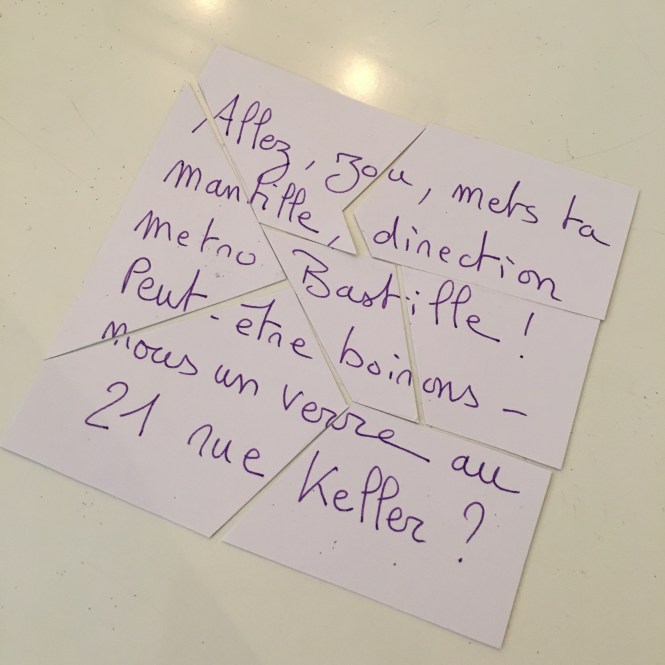 Allez, zou, mets ta
mantille, direction
metro Bastille !
Peut-être boirons-
nous un verre au
21 rue Keller ?